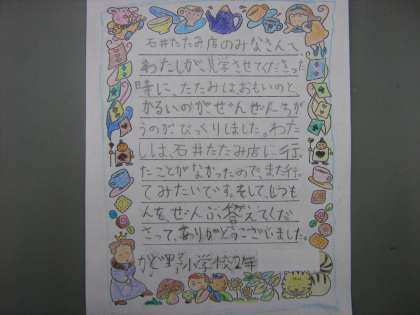 石井たたみ店のみなさんへ
わたしが、見学させてくださった
時に、たたみはおもいのと、
かるいのがぜんぜんちが
うのがびっくりしました。わた
しは、石井たたみ店に行っ
たことがなかったので、また行っ
てみたいです。そして、しつも
んを、ぜんぶ答えてくだ
さって、ありがとうございました。
かど野小学校2年